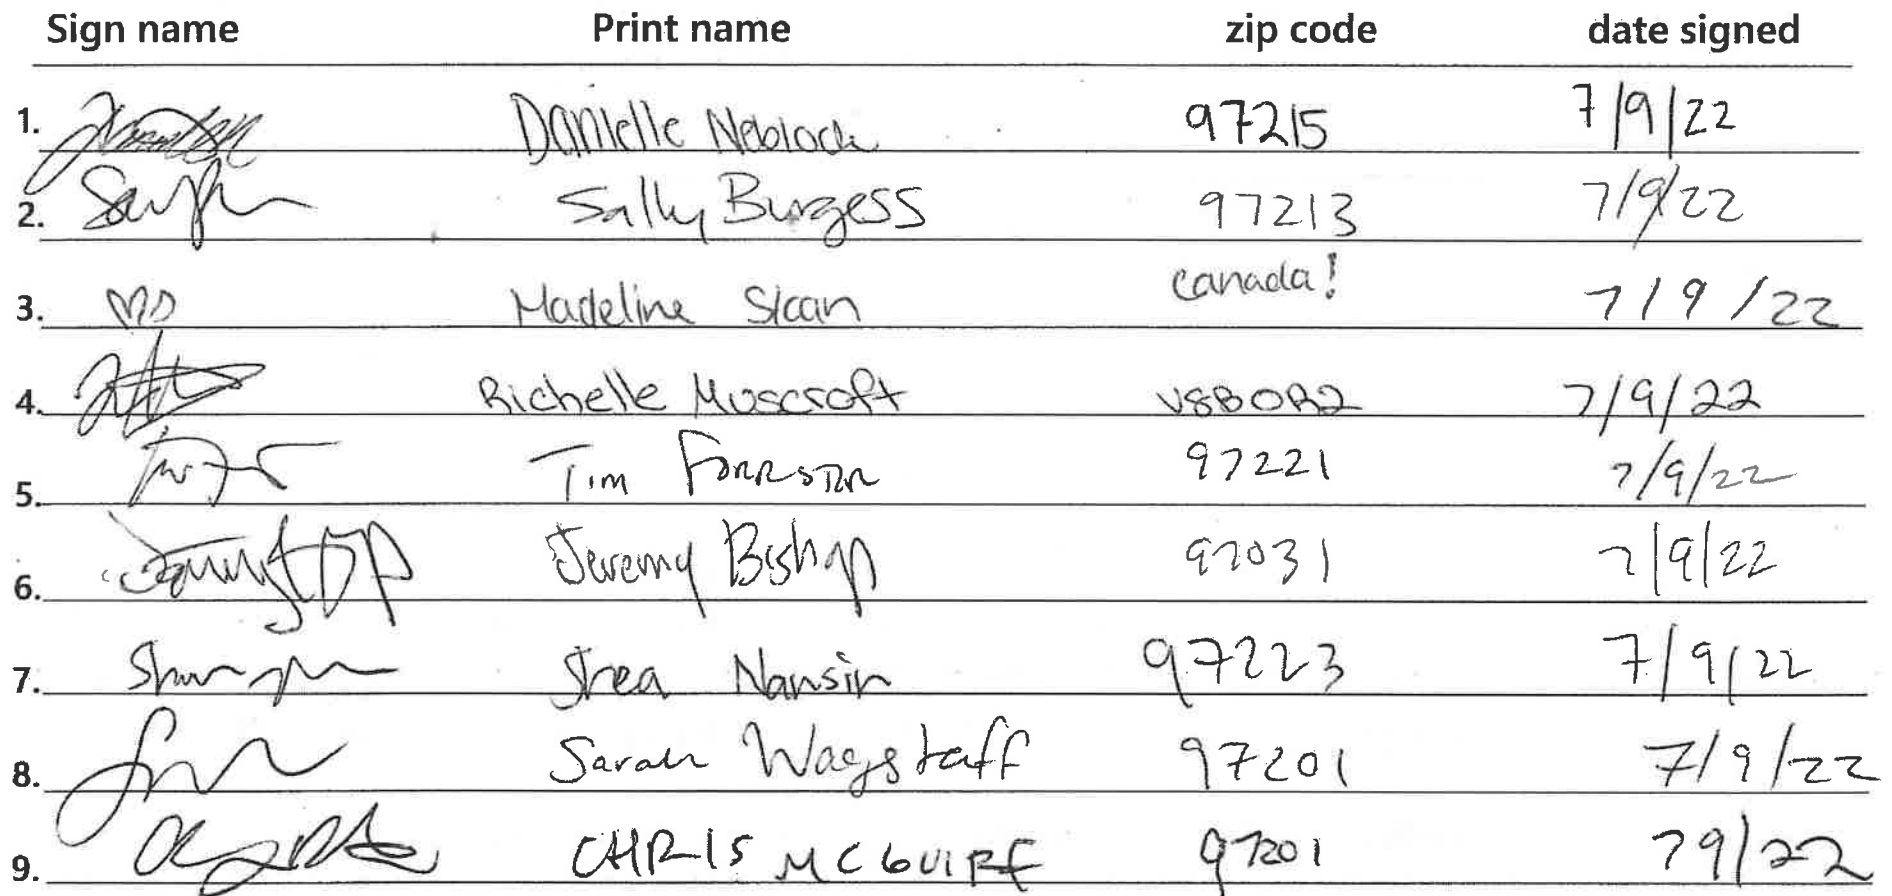 Sign name Print name zip code date signed
1. Danielle 97215 7/9/22
2. Sally Burgess 97213 7/9/22
canada!
3. MS Madeline Sloan 7/9/22
4. Richelle Muscroft V8B0R2 7/9/22
5. Tim Forrester 97221 7/9/22
6. Jeremy Bishop 97031 7/9/22
7. Shea 97223 7/9/22
8. Sarah Wagstaff 97201 7/9/22
9. CHRIS MCGUIRE 97201 79/22